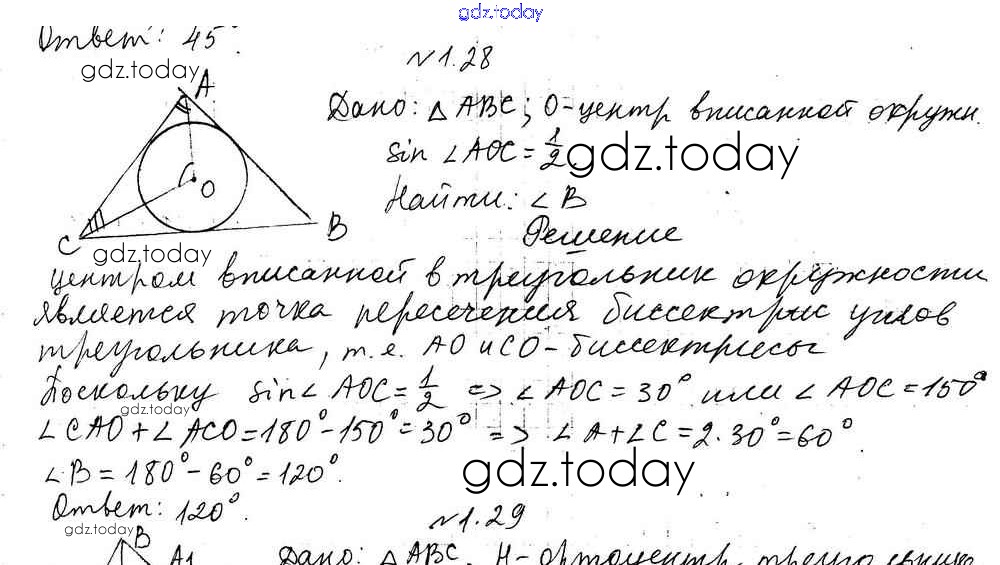 gdz.today
Ответ: 45°.
gdz.today
№1.28
A
Дано: △ABC; O-центр вписанной окружн.
sin ∠AOC = 1/2.
gdz.today
Найти: ∠B
O
B
C
Решение
gdz.today
Центром вписанной в треугольник окружности
является точка пересечения биссектрис углов
треугольника, т.е. AO и CO - биссектрисы
Поскольку sin∠AOC = 1/2 => ∠AOC = 30° или ∠AOC = 150°
gdz.today
∠CAO + ∠ACO = 180° - 150° = 30° => ∠A + ∠C = 2·30° = 60°
∠B = 180° - 60° = 120°.
gdz.today
Ответ: 120°.
gdz.today
№1.29
B
A1
Дано: △ABC, H - ортоцентр треугольника